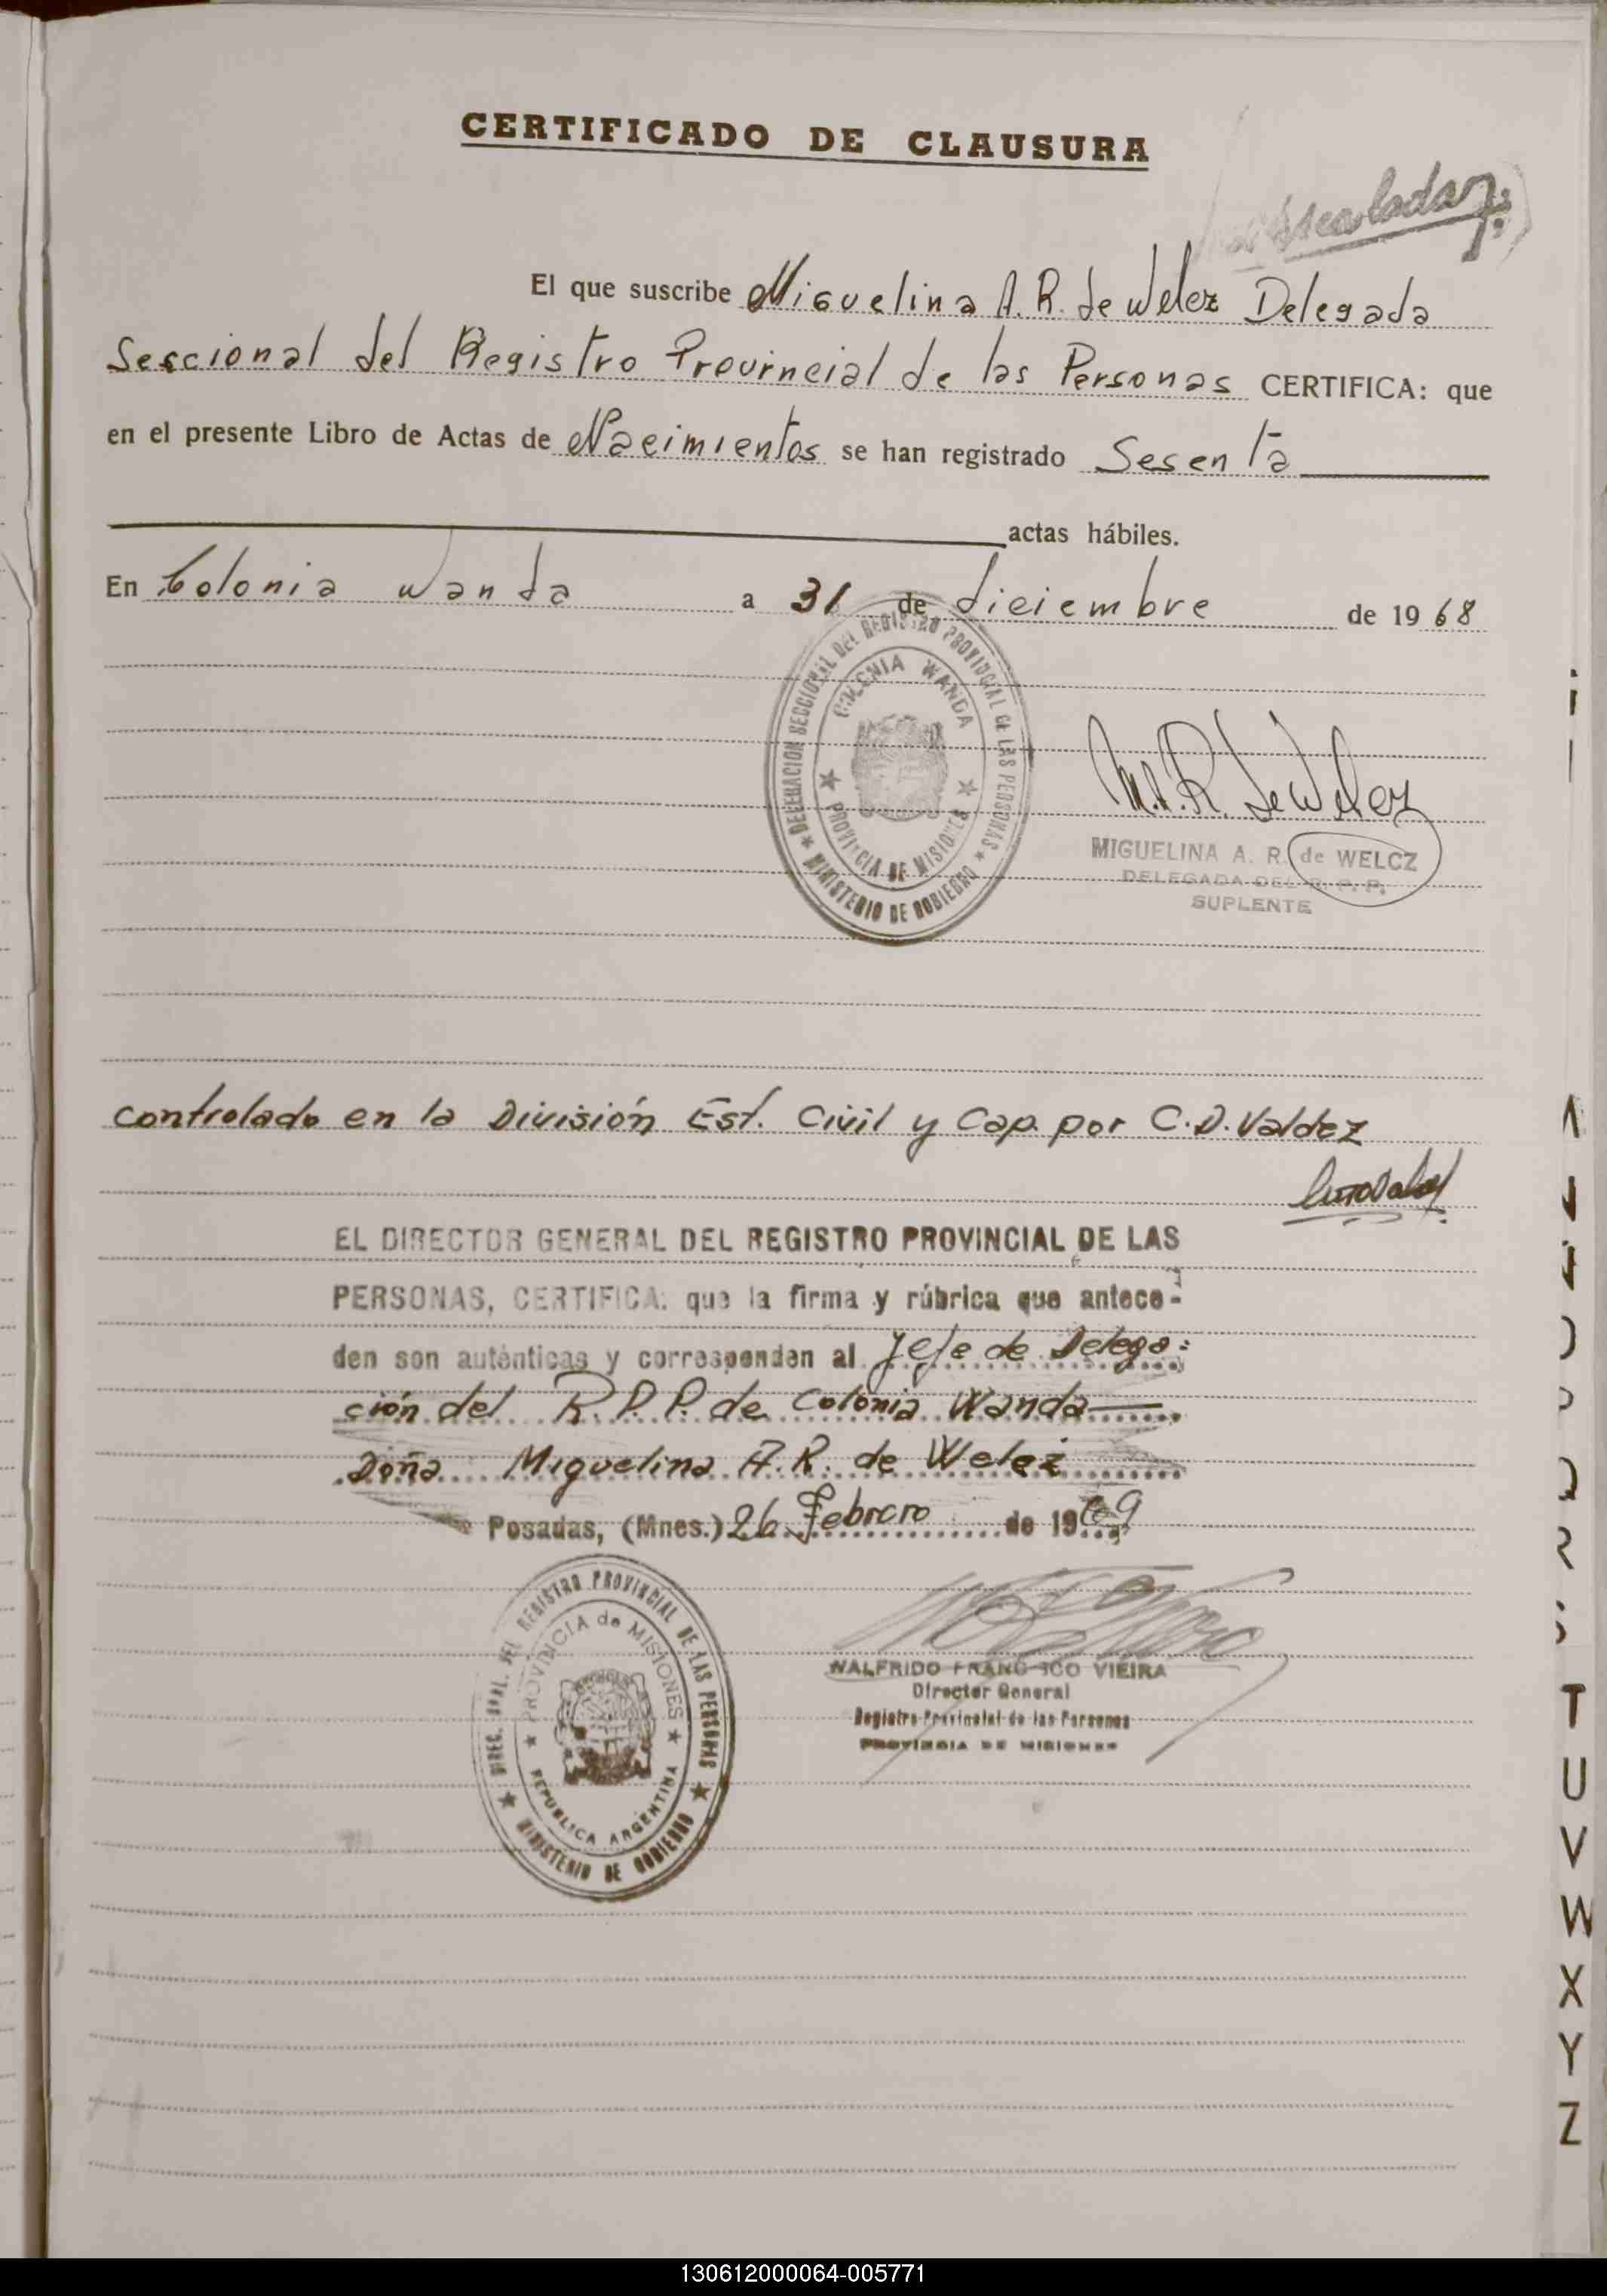 CERTIFICADO DE CLAUSURA
El que suscribe Miguelina A. R. de Welcz Delegada
Seccional del Registro Provincial de las Personas CERTIFICA: que
en el presente Libro de Actas de Nacimientos se han registrado Sesenta
actas hábiles.
En Colonia Wanda a 31 de diciembre de 1968
DELEGACION SECCIONAL DEL REGISTRO PROVINCIAL DE LAS PERSONAS
COLONIA WANDA
PROVINCIA DE MISIONES
MINISTERIO DE GOBIERNO
M.A.R. de Welcz
MIGUELINA A. R. de WELCZ
DELEGADA DEL R. P. P.
SUPLENTE
controlado en la División Est. Civil y Cap. por C.D. Valdez
EL DIRECTOR GENERAL DEL REGISTRO PROVINCIAL DE LAS
PERSONAS, CERTIFICA: que la firma y rúbrica que antece-
den son auténticas y corresponden al Jefe de Delega-
ción del R. P. P. de Colonia Wanda
Doña Miguelina A. R. de Welcz
Posadas, (Mnes.) 26 Febrero de 1969
DIREC. GRAL. DEL REGISTRO PROVINCIAL DE LAS PERSONAS
PROVINCIA de MISIONES
REPUBLICA ARGENTINA
MINISTERIO DE GOBIERNO
WALFRIDO FRANCISCO VIEIRA
Director General
Registro Provincial de las Personas
PROVINCIA DE MISIONES
T
U
V
W
X
Y
Z
130612000064-005771